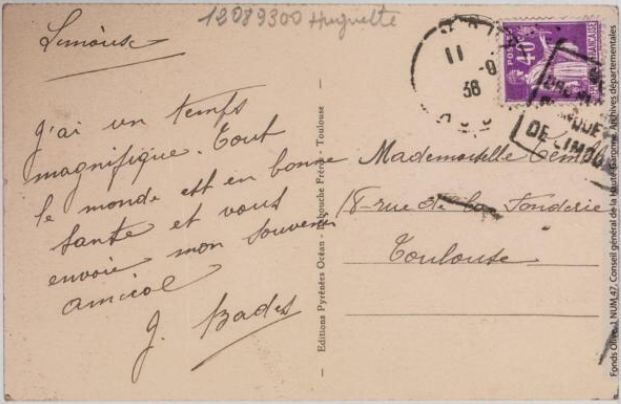 12089300 Huguette
Limoux
J'ai un temps
magnifique. Tout
le monde est en bonne
Santé et vous
envoie mon souvenir
amical
J. Bades
Editions Pyrénées Océan - Labouche Frères - Toulouse
11
38
POSTES
40
FRANÇAISE
DE LIMOUX
Mademoiselle
18 - rue de la Fonderie
Toulouse
Conseil général de la Haute-Garonne, Archives départementales